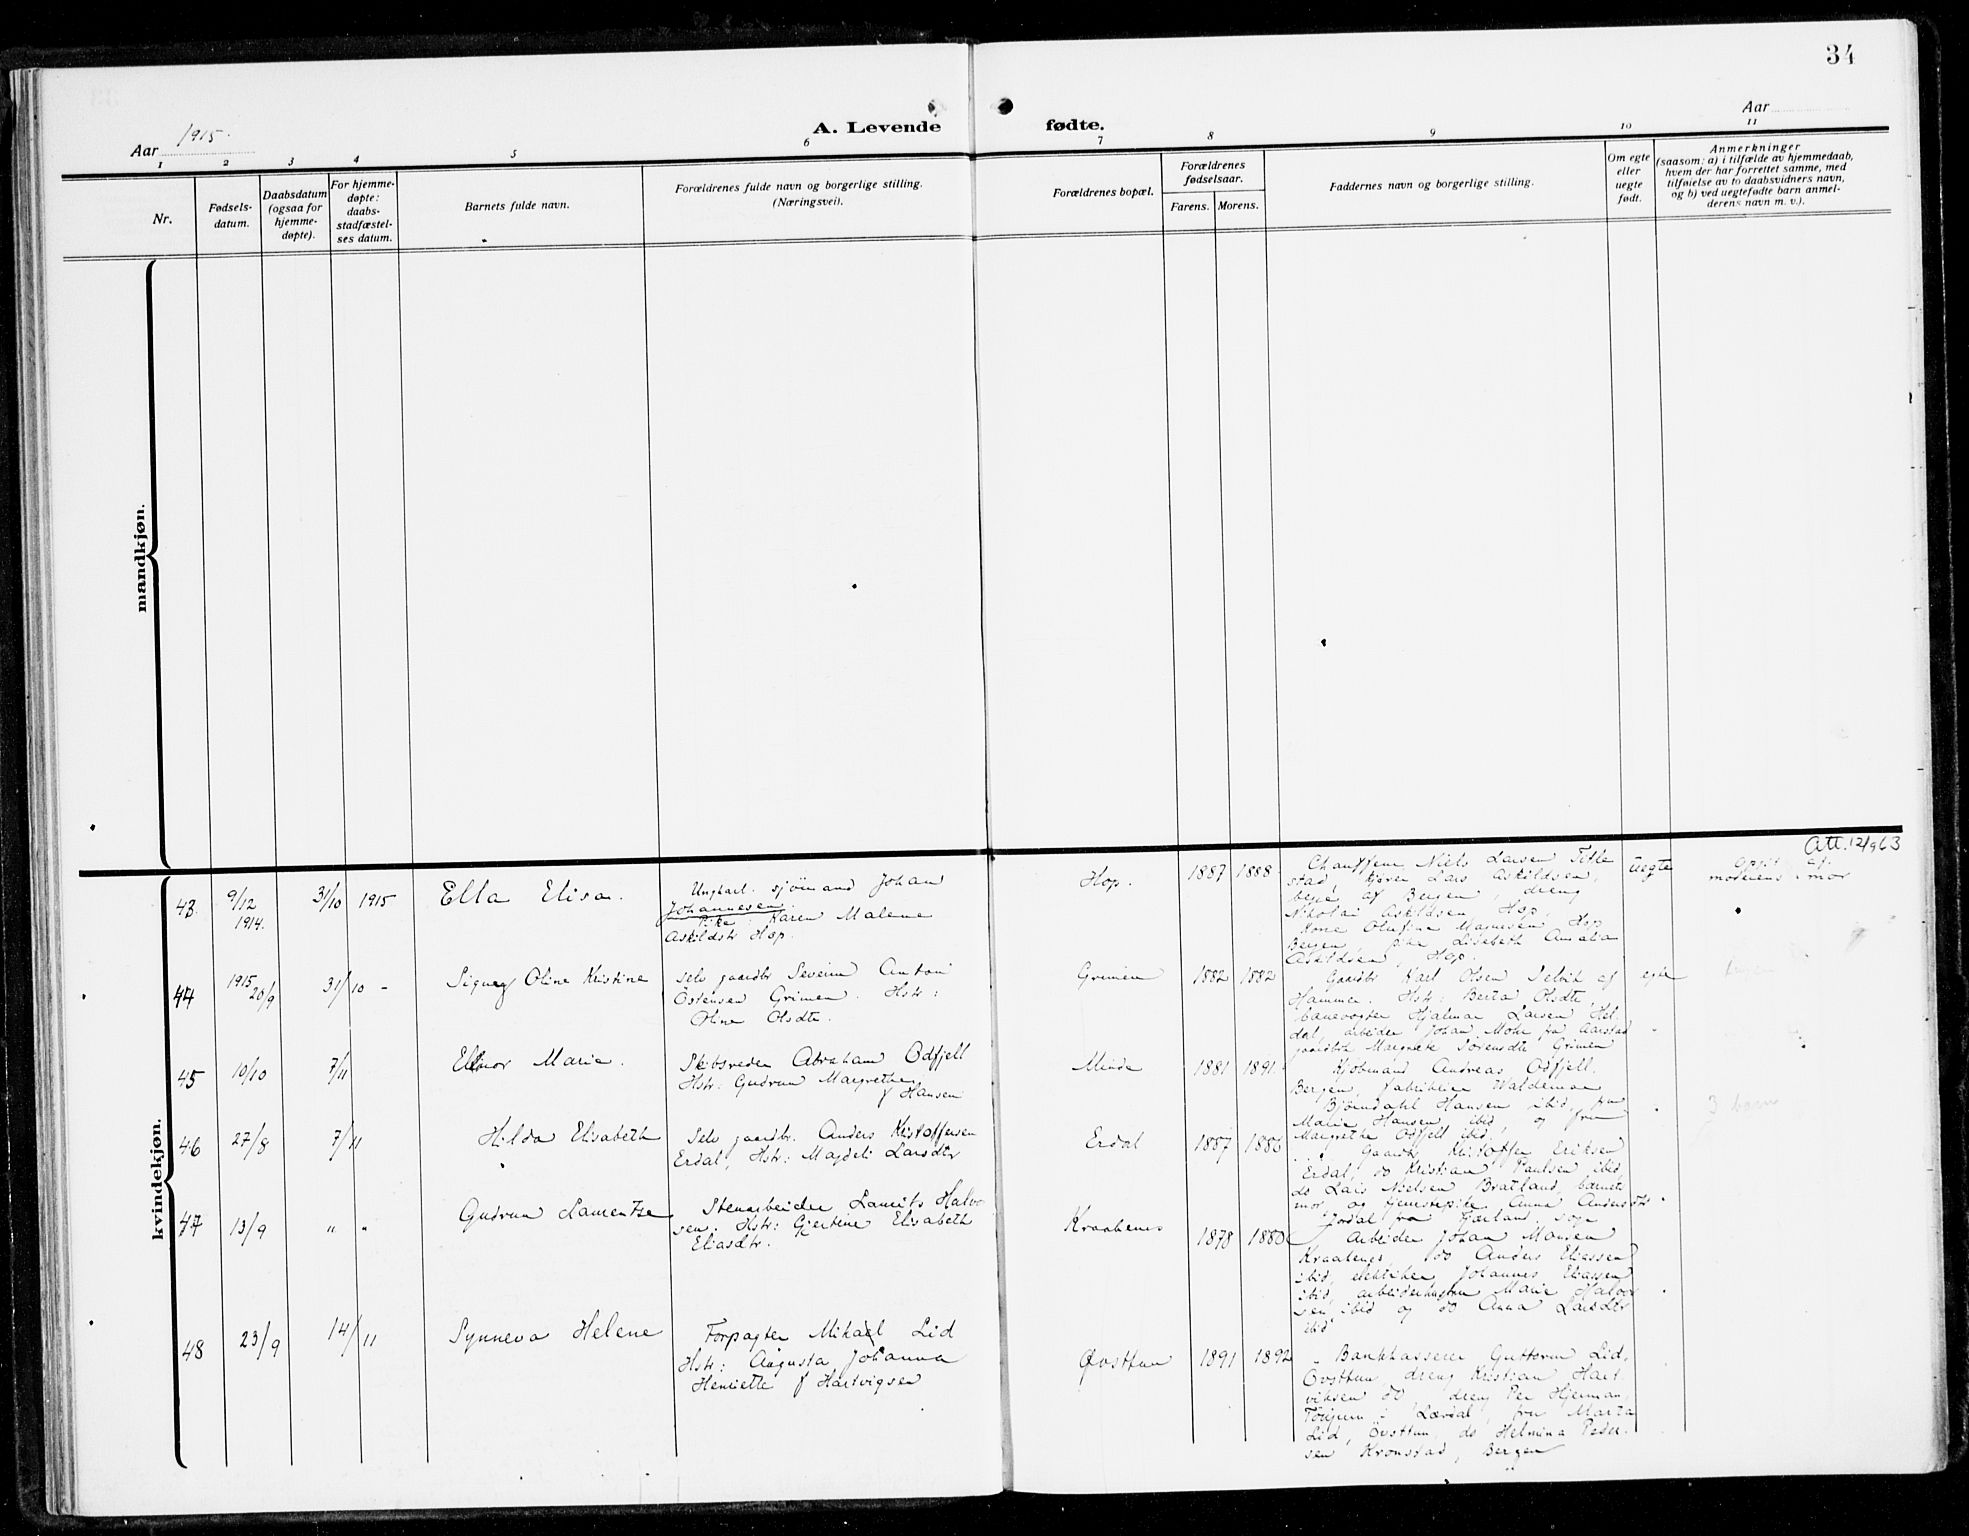 34
Aar 1915.
A. Levende fødte.
Aar
1 2 3 4 5 6 7 8 9 10 11
Nr.
Fødselsdatum.
Daabsdatum (ogsaa for hjemmedøpte).
For hjemmedøpte: daabsstadfæstelses datum.
Barnets fulde navn.
Forældrenes fulde navn og borgerlige stilling.
(Næringsvei).
Forældrenes bopæl.
Forældrenes fødselsaar.
Farens. Morens.
Faddernes navn og borgerlige stilling.
Om egte eller uegte født.
Anmerkninger
(saasom: a) i tilfælde av hjemmedaab,
hvem der har forrettet samme, med
tilføielse av to daabsvidners navn,
og b) ved uegtefødte barn anmelderens navn m. v.).
mandkjøn.
kvindekjøn.
43. 9/12 1914. 31/10 1915 Ella Elisa.
Ungkarl. sjömand Johan
Johannesen.
Pike Karen Malene
Askildstr Hop.
Hop. 1887 1888
Chauffeur Niels Larsen Titlestad, Lars Askildsen,
af Bergen, dreng
Nikolai Askildsen, Hop,
Kone Olufine Magnesen Hop
Bergen, pike Lisebeth Amalia
Askildsen, Hop.
uegte
Att. 12/9 63
moderens mor
44 1915 20/9 31/10 - Signe Oline Kristine
Selv gaardbr Severin Anton
Östensen Grimen. Hstr:
Oline Olsdtr.
Grimen 1882 1882
Gaardbr Karl Olsen af
Hammer. Hstr: Berta Olsdtr,
banevogter Hjalmar Larsen Heldal, arbeider Johan Mohr fra Aarstad
gaardbr Margrete Sörensdtr Grimen
egte
45 10/10 7/11 Ellinor Marie.
Skibsreder Abraham Odfjell
Hstr: Gudrun Margrethe
f Hansen
Minde 1881 1891.
Kjöbmand Andreas Odfjell.
Bergen, fabrikeier Waldemar
Björndahl Hansen ibid, fru
Malie Hansen ibid, og fru
Margrethe Odfjell ibid.
3 barn
46 27/8 7/11 Hilda Elisabeth
Selv gaardbr. Anders Kristoffersen
Erdal, Hstr: Magdeli Larsdtr
Erdal 1887 1886
Gaardbr Kristoffer Eriksen
Erdal, do Kristian Paulsen ibid
do Lars Nielsen Bratland, barnets
mor, og tjenestepike Anna Andersdtr
Jordal fra Fjærland
47 13/9 " " Gudrun Lamentze
Stenarbeider Laurits Halvorsen. Hstr: Gjertine Elisabeth
Eliasdtr.
Kraakenes 1878 1880
Arbeider Johan Monsen
Kraakenes, do Anders Eliassen
ibid, elektriker Johannes Eliassen
ibid, arbeiderhustru Marie Halvorsen ibid og do Anna Larsdtr
ibid
48 23/9 14/11 Synneva Helene
Forpagter Mikael Lid
Hstr: Augusta Johanna
Henriette f Hartvigsen
Øvsttun 1891 1892
Bankkasserer Guttorm Lid,
Övsttun, dreng Kristian Hartviksen do dreng Per Hjerman,
Tönjum i Lærdal, fru Marta
Lid, Övsttun, do Helmina Pedersen Kronstad, Bergen